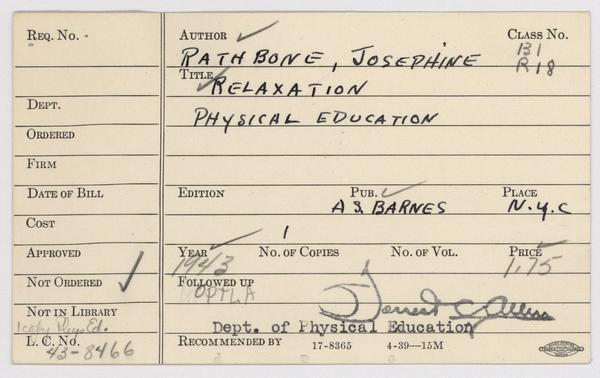 REQ. NO.
AUTHOR
CLASS NO.
RATHBONE, JOSEPHINE
B1
R18
TITLE
RELAXATION
DEPT.
PHYSICAL EDUCATION
ORDERED
FIRM
DATE OF BILL
EDITION
PUB.
PLACE
A.S. BARNES
N.Y.C
COST
1
APPROVED
YEAR
NO. OF COPIES
NO. OF VOL.
PRICE
1943
1.75
NOT ORDERED
FOLLOWED UP
NOT IN LIBRARY
Forrest C. Allen
1 copy Phys Ed.
Dept. of Physical Education
L. C. NO.
43-8466
RECOMMENDED BY
17-8365
4-39—15M